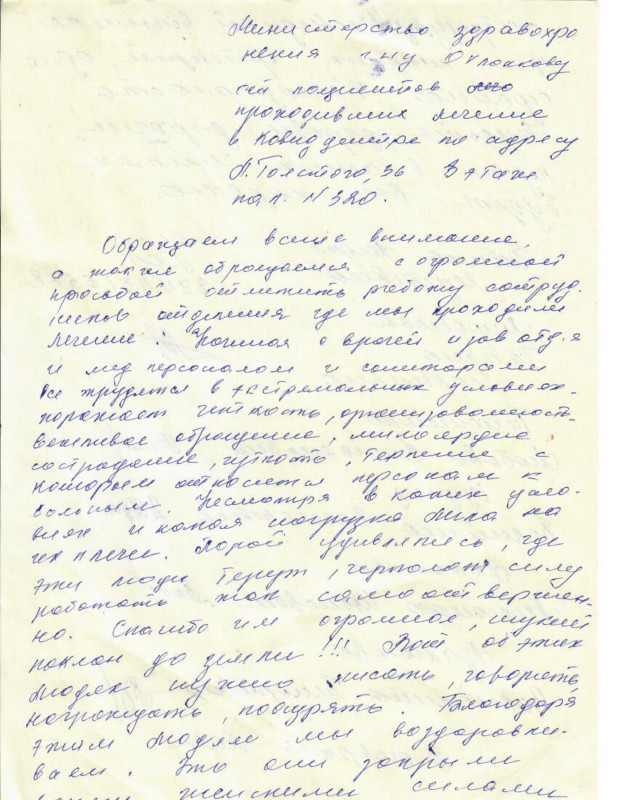 Министерство здравохро
нения г-ну
от пациентов
проходивших лечение
в Ковид центре по адресу
Л. Толстого, 36 3 этаж
пал. N 320.
Обращаем ваше внимание,
а также обращаемся с огромной
просьбой отметить работу сотруд.
ников отделения где мы проходили
лечение. Начиная с врачей и зав отд-я
и мед персоналом и санитарами
все трудятся в экстремальных условиях.
поражает чёткость, организованность
вежливое обращение, милосердие
сострадание, чуткость, терпение с
которым относится персонал к
больным. Несмотря в каких усло-
виях и какая нагрузка легла на
их плечи. Порой удивляюсь, где
эти люди берут, черпают силу
работать так самоотвержен-
но. Спасибо им огромное, низкий
поклон до земли!!! Вот об этих
людях нужно писать, говорить,
награждать, поощрять. Благодаря
этим людям мы выздоравли-
ваем. Это они закрыли
женскими силами